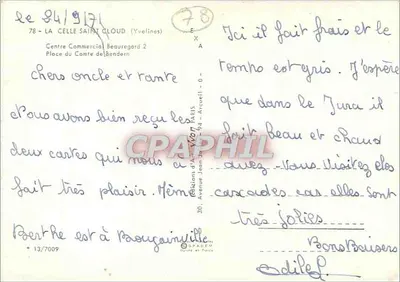 le 24/9/71
78
78 - LA CELLE SAINT CLOUD (Yvelines)
Centre Commercial Beauregard 2
Place du Comte de Bendern
Chers oncle et tante
Nous avons bien reçu les
deux cartes qui nous a
fait très plaisir. Mémé
Berthe est à Bougainville
13/7009
EXA
30, Avenue Jean
94 - Arcueil
Ici il fait frais et le
temps est gris. J'espère
que dans le Jura il
fait beau et chaud
avez-vous visitez les
cascades car elles sont
très jolies
Bons Baisers
Odile
CARTE-POSTALE.COM